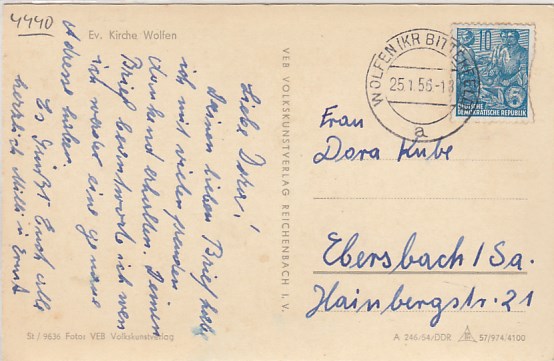 4440
Ev. Kirche Wolfen
Liebe Dora!
Deinen lieben Brief habe
ich mit vielen Freuden
dankend erhalten. Deinen
Brief beantworte ich wen
ich wieder eine genaue
Adresse habe.
Es grüßt Euch alle
herzlich Milli u. Ernst
St / 9636 Fotos VEB Volkskunstverlag
VEB VOLKSKUNSTVERLAG REICHENBACH I. V.
WOLFEN (KR BITTERFELD)
25.1.56-18
a
10
5
DEUTSCHE DEMOKRATISCHE REPUBLIK
Frau
Dora Kube
Ebersbach / Sa.
Hainbergstr. 21
A 246/54/DDR 57/974/4100